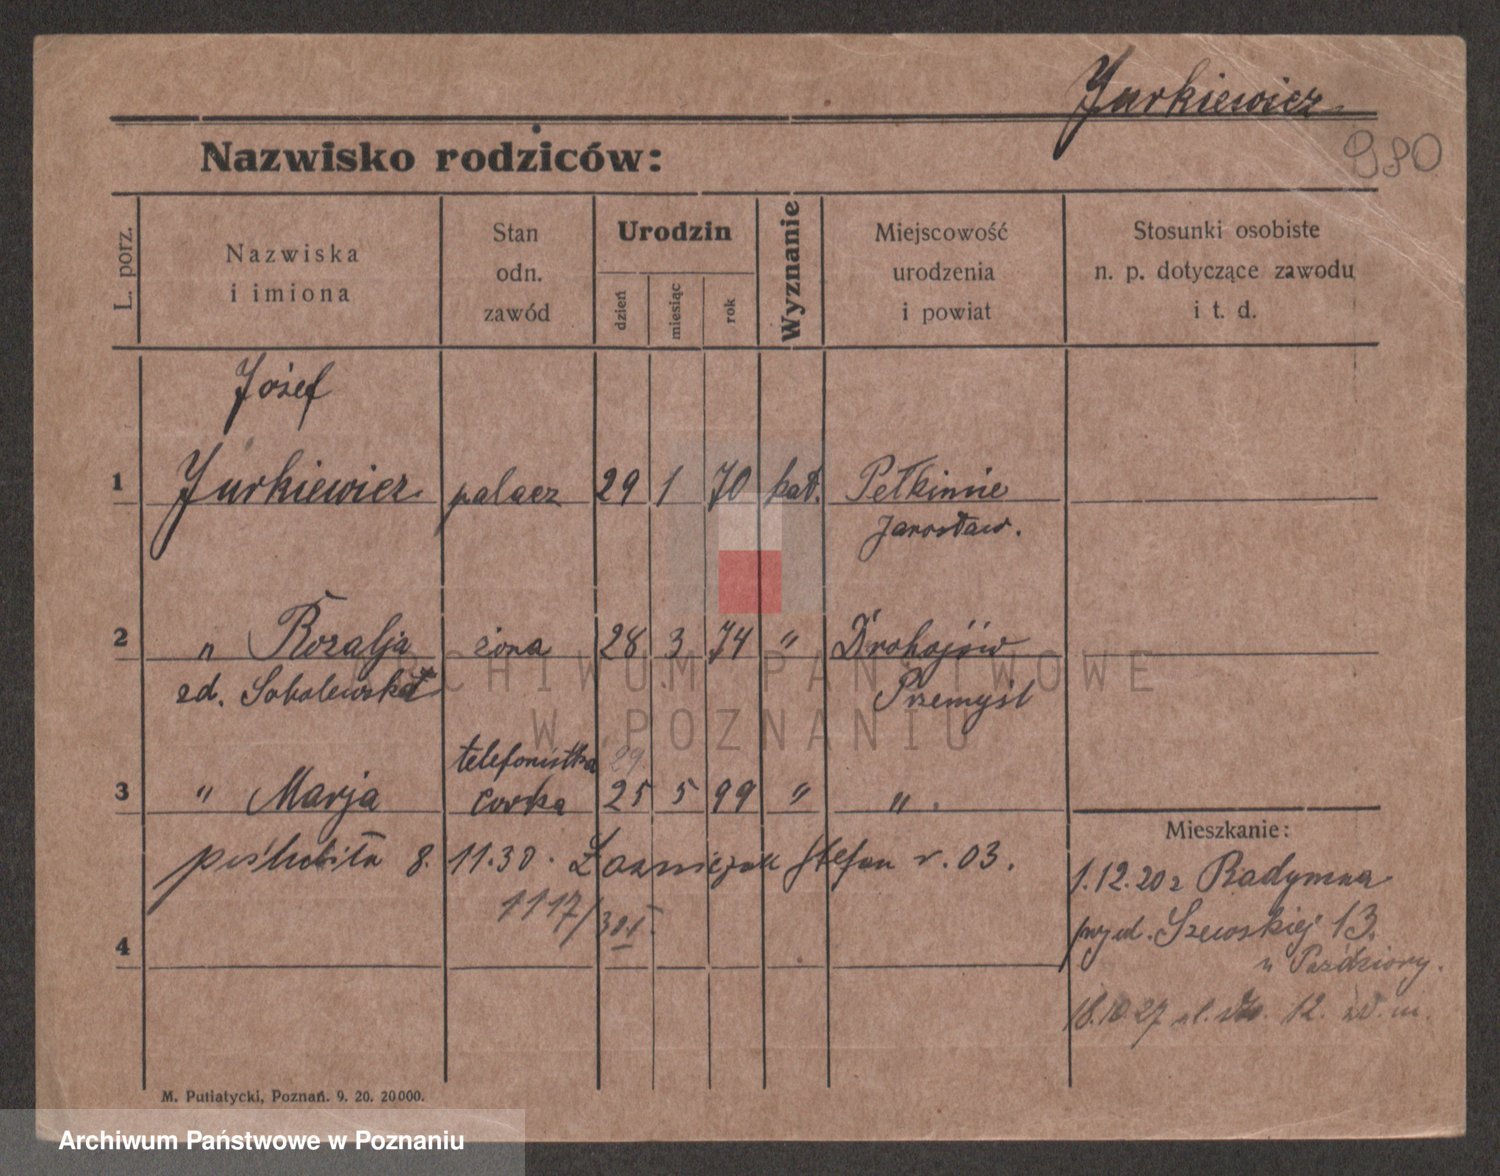 Jurkiewicz
980
Nazwisko rodziców:
L. porz.
Nazwiska
i imiona
Stan
odn.
zawód
Urodzin
dzień
miesiąc
rok
Wyznanie
Miejscowość
urodzenia
i powiat
Stosunki osobiste
n. p. dotyczące zawodu
i t. d.
Józef
1 Jurkiewicz palacz 29 1 70 kat. Pełkinie
Jarosław.
2 " Rozalja żona 28 3 74 " Drohojów
zd. Sobolewska Przemyśl
telefonistka 29
3 " Marja córka 25 5 99 " ".
poślubiła 8.11.30. Stefan r. 03.
1117/
4
Mieszkanie:
1.12.20 z Radymna
przy ul. Szewskiej 13.
u
18.10.27 12.
M. Putiatycki, Poznań. 9. 20. 20000.
ARCHIWUM PAŃSTWOWE
W POZNANIU
Archiwum Państwowe w Poznaniu